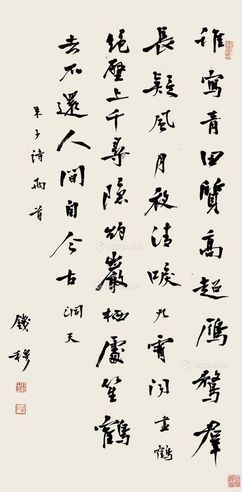 誰寫青田質高超雁鶩羣
長疑風月夜清唳九霄聞 畫鶴
絕壁上千尋隱約巖栖處笙鶴
去不還人間自今古 洞天
朱子詩兩首
錢穆